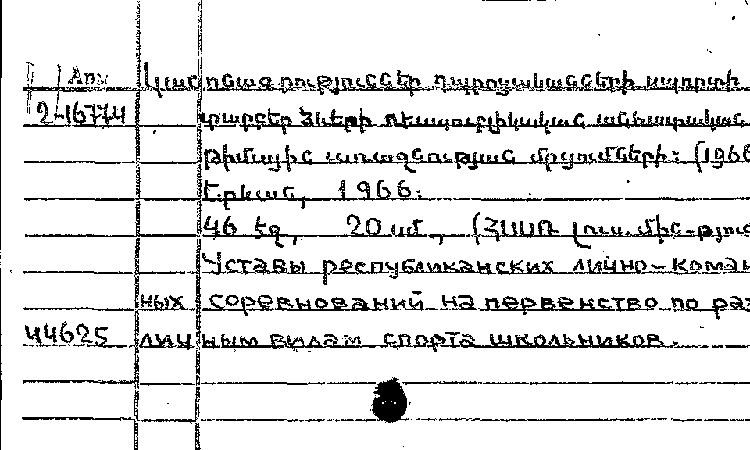 Апм Կանոնադրություններ դպրոցականների սպորտի
2-16774 տարբեր ձևերի ռեսպուբլիկական անհատական
թիմային առաջնության մրցումների: (1966
Երևան, 1966:
46 էջ, 20 սմ, (ՀՍՍՌ լուս. մին-թյու
Уставы республиканских лично-коман
ных соревнований на первенство по раз
44625 личным видам спорта школьников.